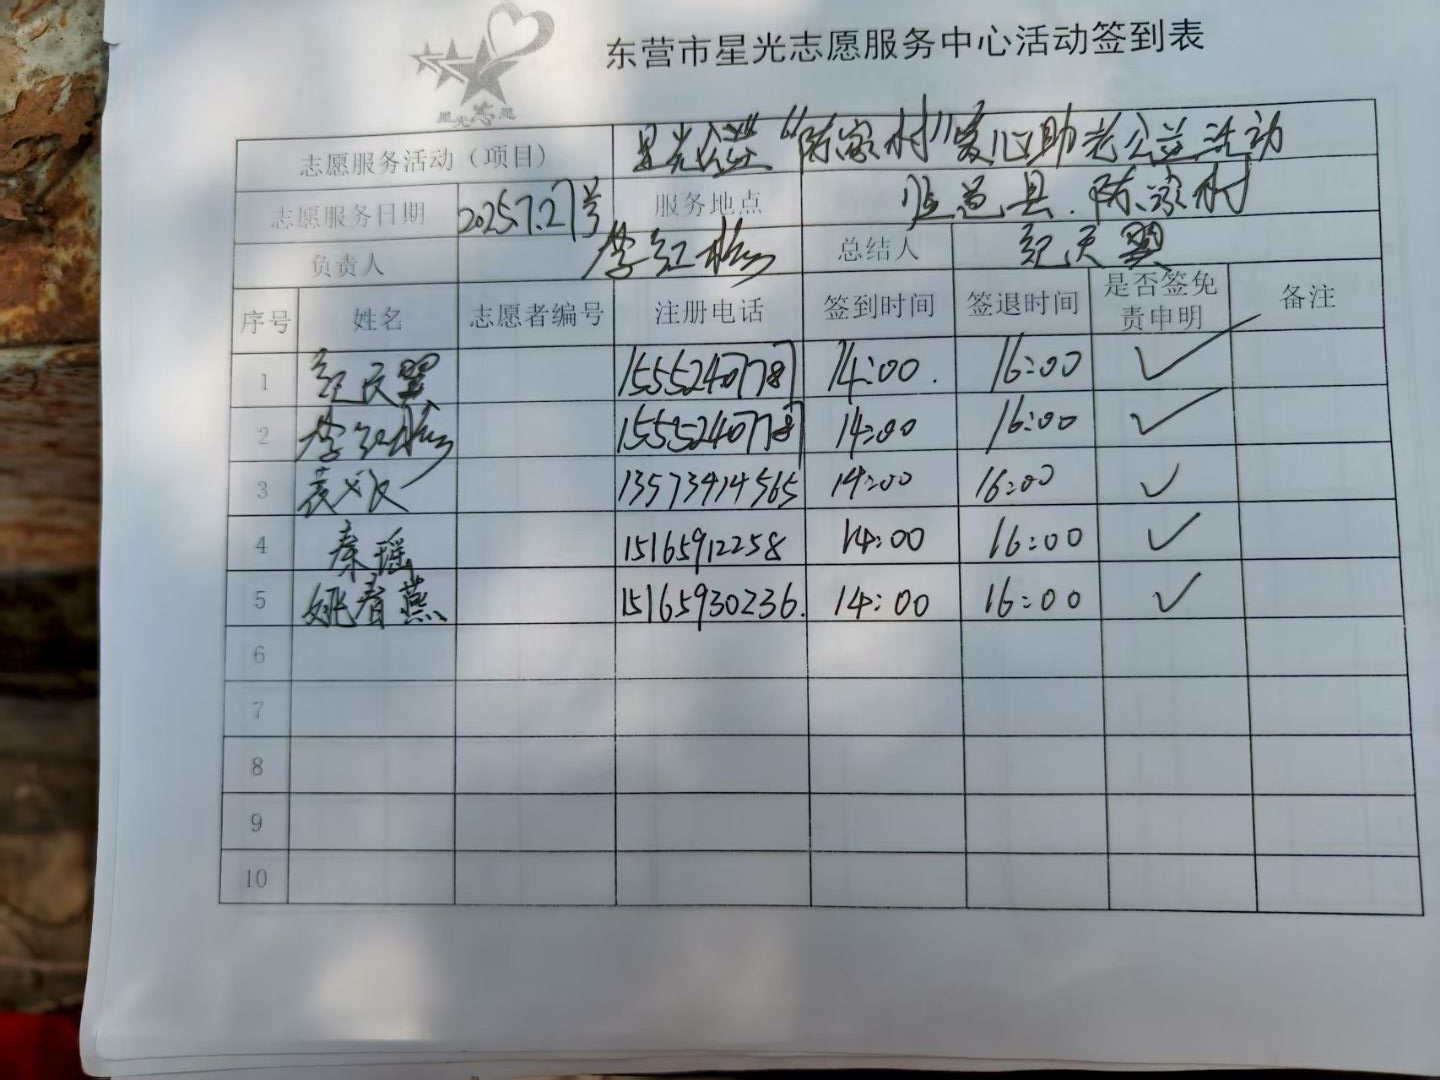 星光志愿
东营市星光志愿服务中心活动签到表
志愿服务活动（项目） 星光公益“陈家村”爱心助老公益活动
志愿服务日期 2025.7.27号 服务地点 县.陈家村
负责人 李红梅 总结人
序号 姓名 志愿者编号 注册电话 签到时间 签退时间 是否签免责申明 备注
1 15552407787 14:00. 16:00 ✓
2 李红梅 15552407787 14:00 16:00 ✓
3 袁 13573914565 14:00 16:00 ✓
4 秦瑶 15165912258 14:00 16:00 ✓
5 姚春燕 15165930236. 14:00 16:00 ✓
6
7
8
9
10